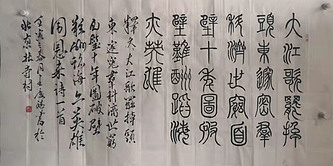 大江歌罷掉
頭東邃密羣
科濟世窮面
壁十年圖破
壁難酬蹈海
亦英雄
釋文大江歌罷掉頭
東邃密群科濟世窮
面壁十年圖破壁
難酬蹈海亦英雄
周恩來詩一首